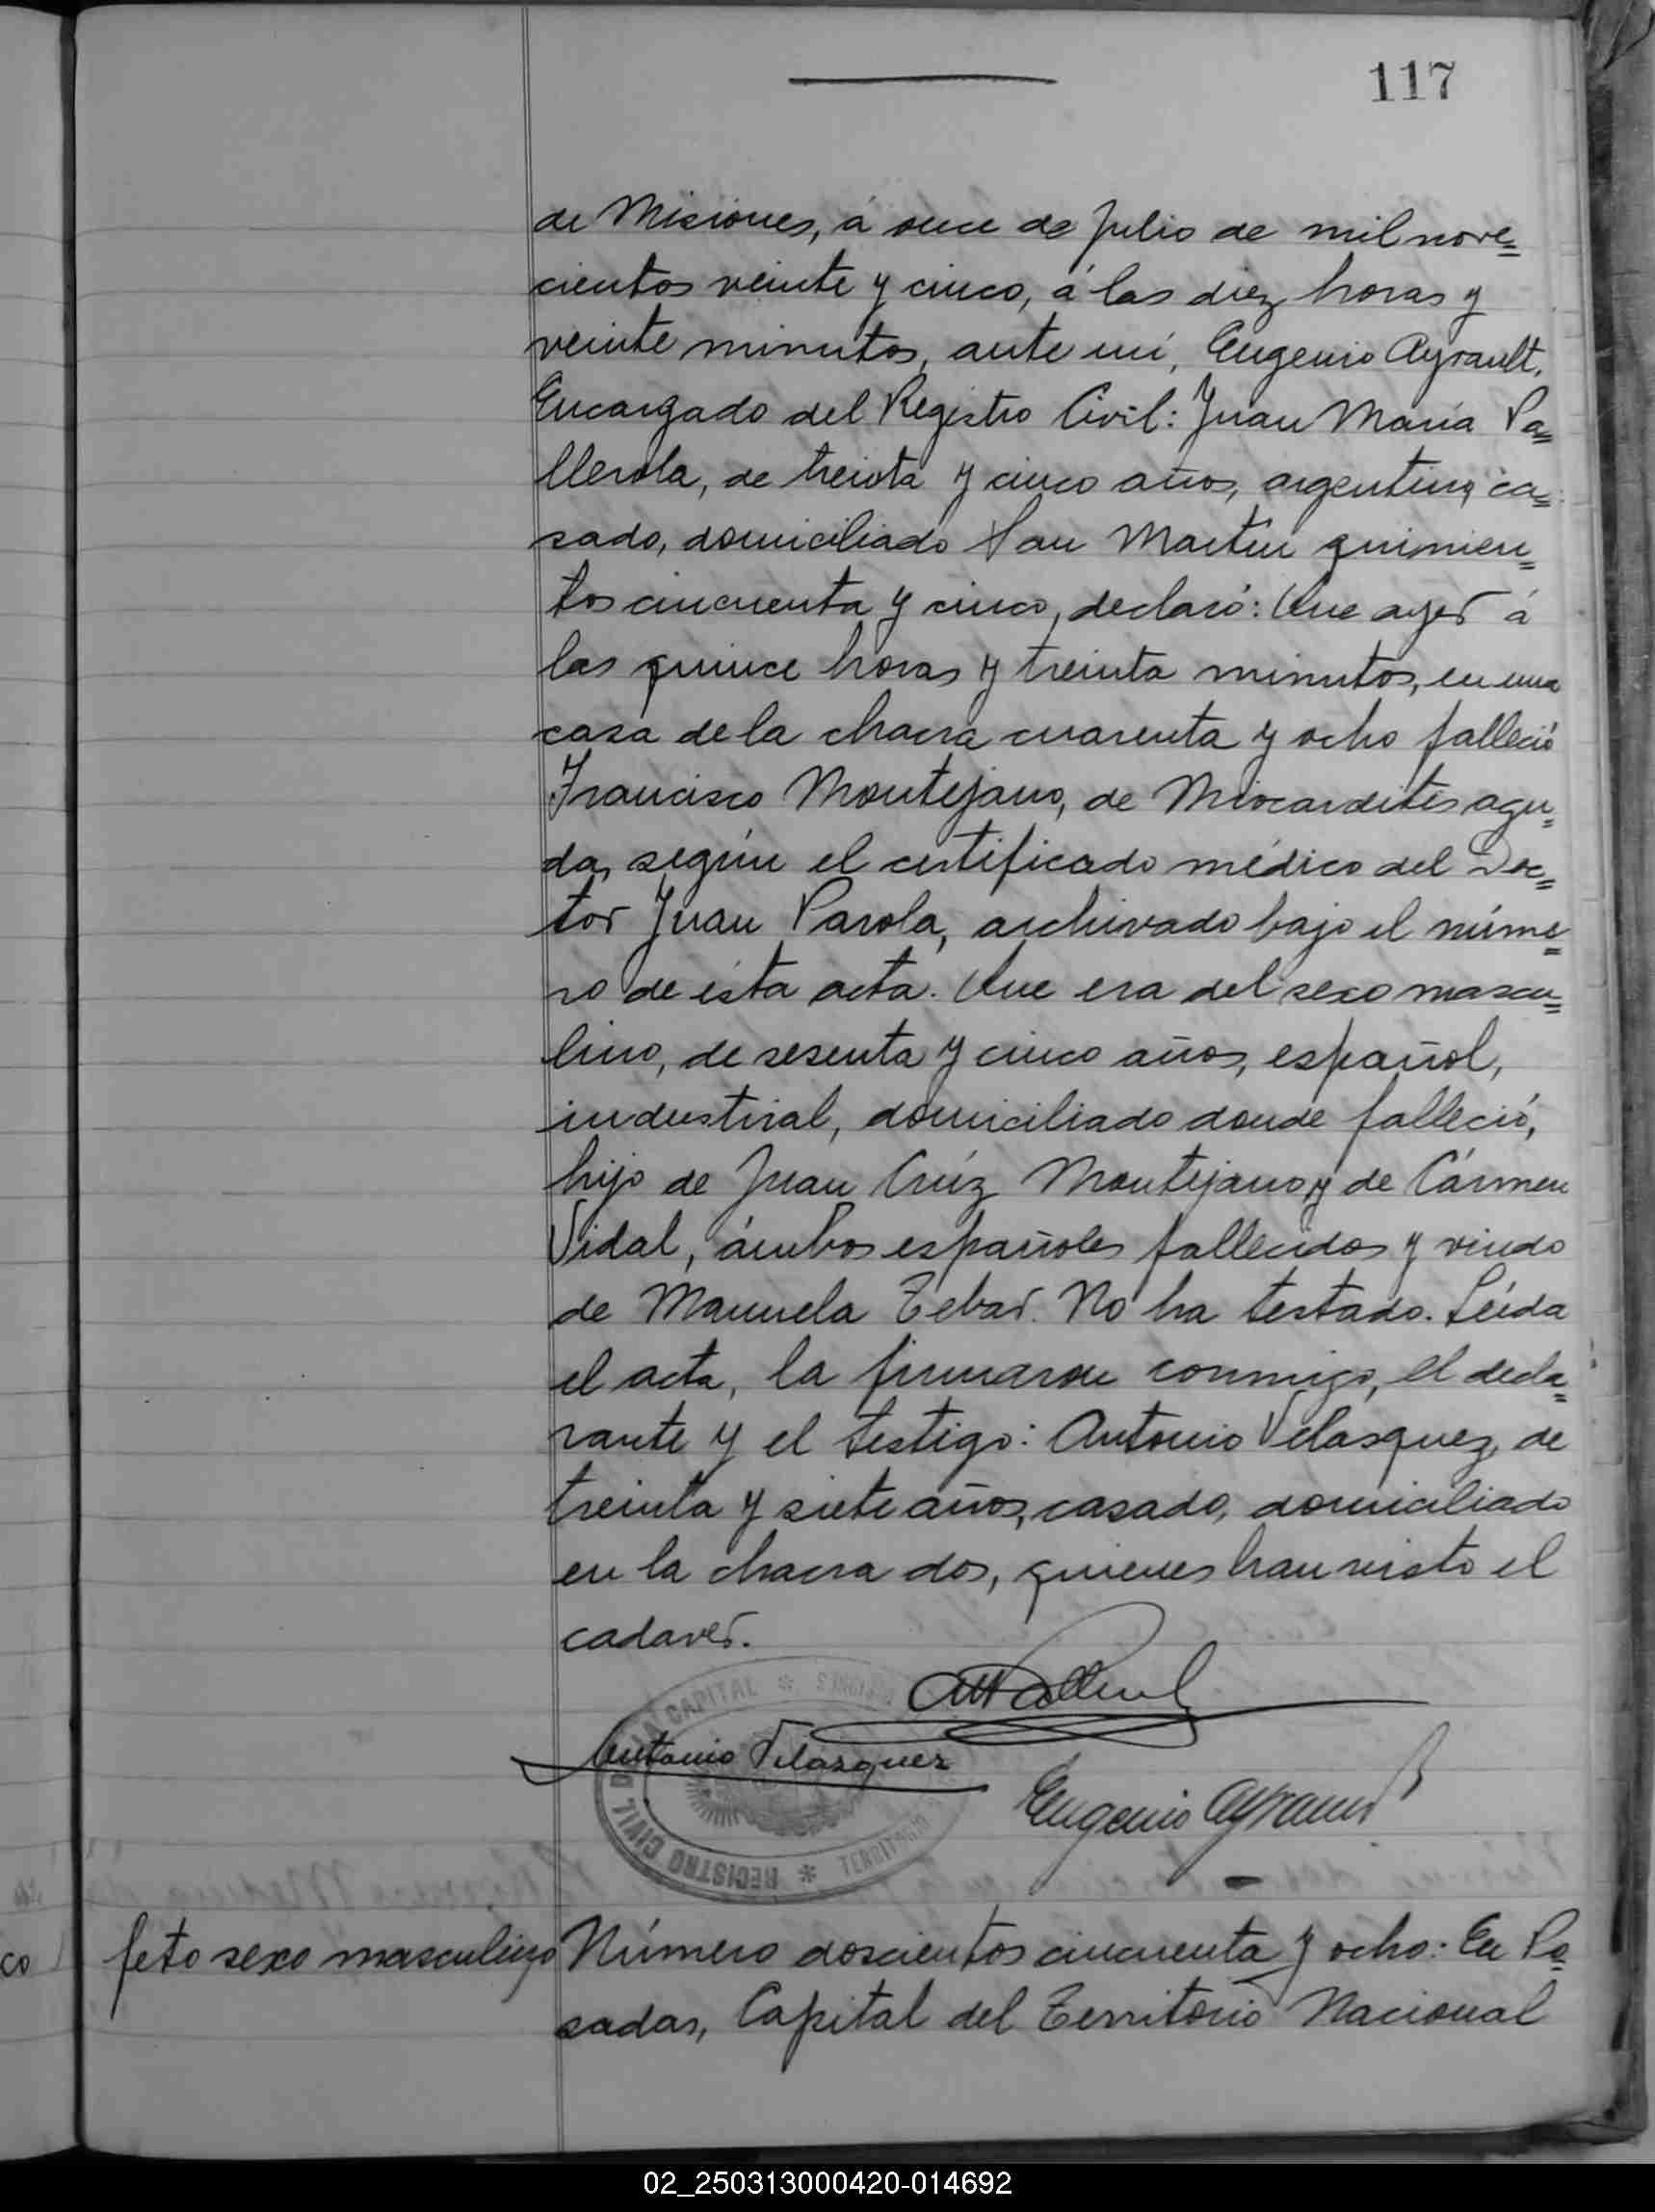 117
de Misiones, á once de Julio de mil nove=
cientos veinte y cinco, á las diez horas y
veinte minutos, ante mí, Eugenio Ayrault,
Encargado del Registro Civil: Juan María Pa=
llerola, de treinta y cinco años, argentino, ca=
sado, domiciliado San Martín quinien=
tos cincuenta y cinco, declaró: Que ayer á
las quince horas y treinta minutos, en una
casa de la chacra cuarenta y ocho falleció
Francisco Montejano, de Miocarditis agu=
da, según el certificado médico del Doc=
tor Juan Parola, archivado bajo el núme=
ro de ésta acta. Que era del sexo mascu=
lino, de sesenta y cinco años, español,
industrial, domiciliado donde falleció,
hijo de Juan Crúz Montejano y de Cármen
Vidal, ámbos españoles fallecidos y viudo
de Manuela Tebar. No ha testado. Leída
el acta, la firmaron conmigo, el decla=
rante y el testigo: Antonio Velasquez, de
treinta y siete años, casado, domiciliado
en la chacra dos, quienes han visto el
cadaver.
Antonio Velasquez
Eugenio Ayrault
REGISTRO CIVIL DE LA CAPITAL * MISIONES * TERRITORIO
co
feto sexo masculino
Número doscientos cincuenta y ocho: En Po=
sadas, Capital del Territorio Nacional
02_250313000420-014692